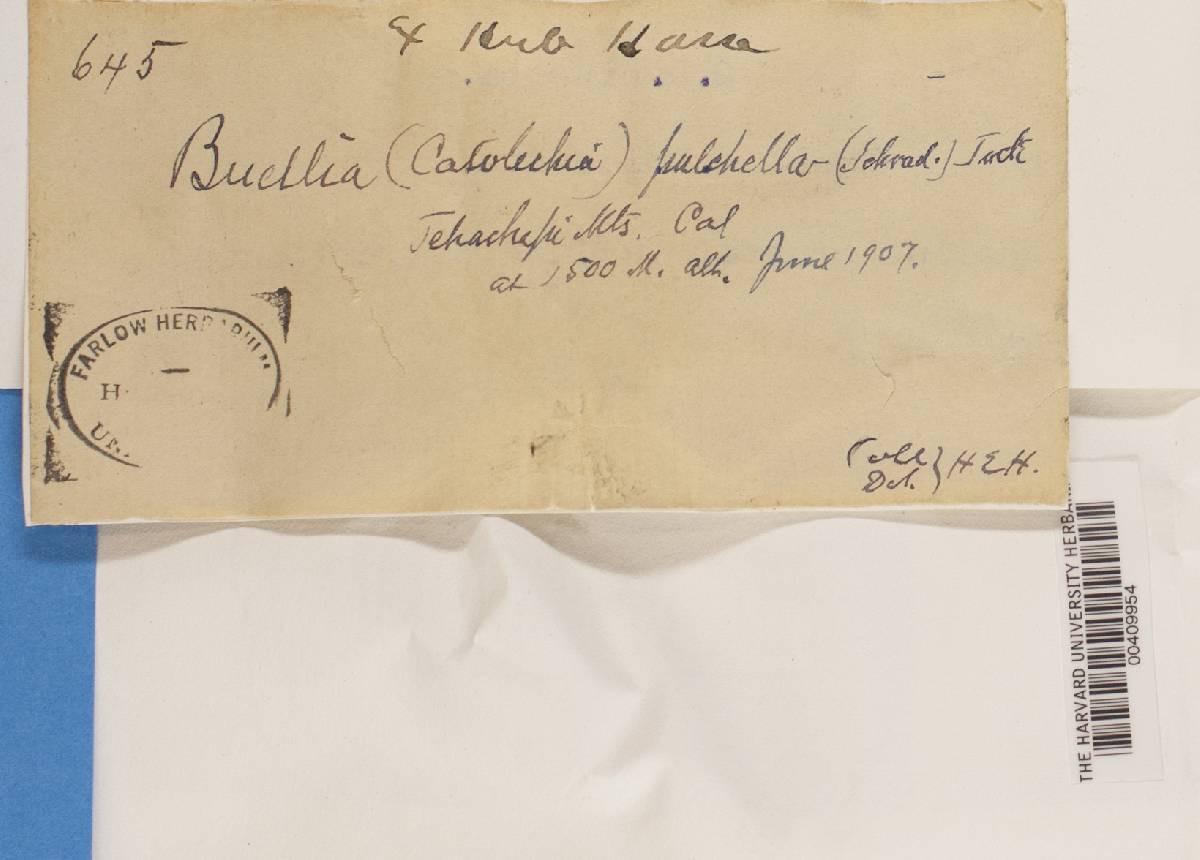 645
Ex Herb Hasse
Buellia (Catolechia) pulchella (Schrad.) Tuck
Tehachepi Mts. Cal
at 1500 M. alt. June 1907.
FARLOW HERBARIUM
H
Coll
Det. } H E H.
THE HARVARD UNIVERSITY HERBARI
00409954